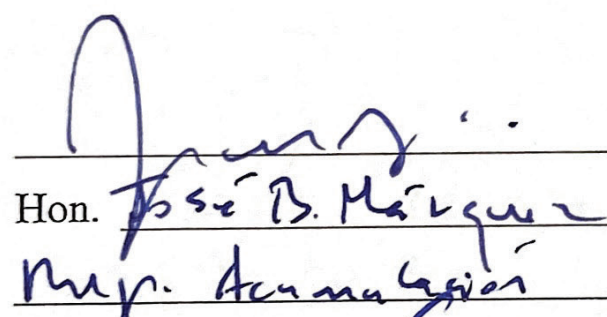 Hon. José B. Márquez
Rep. Acumulación